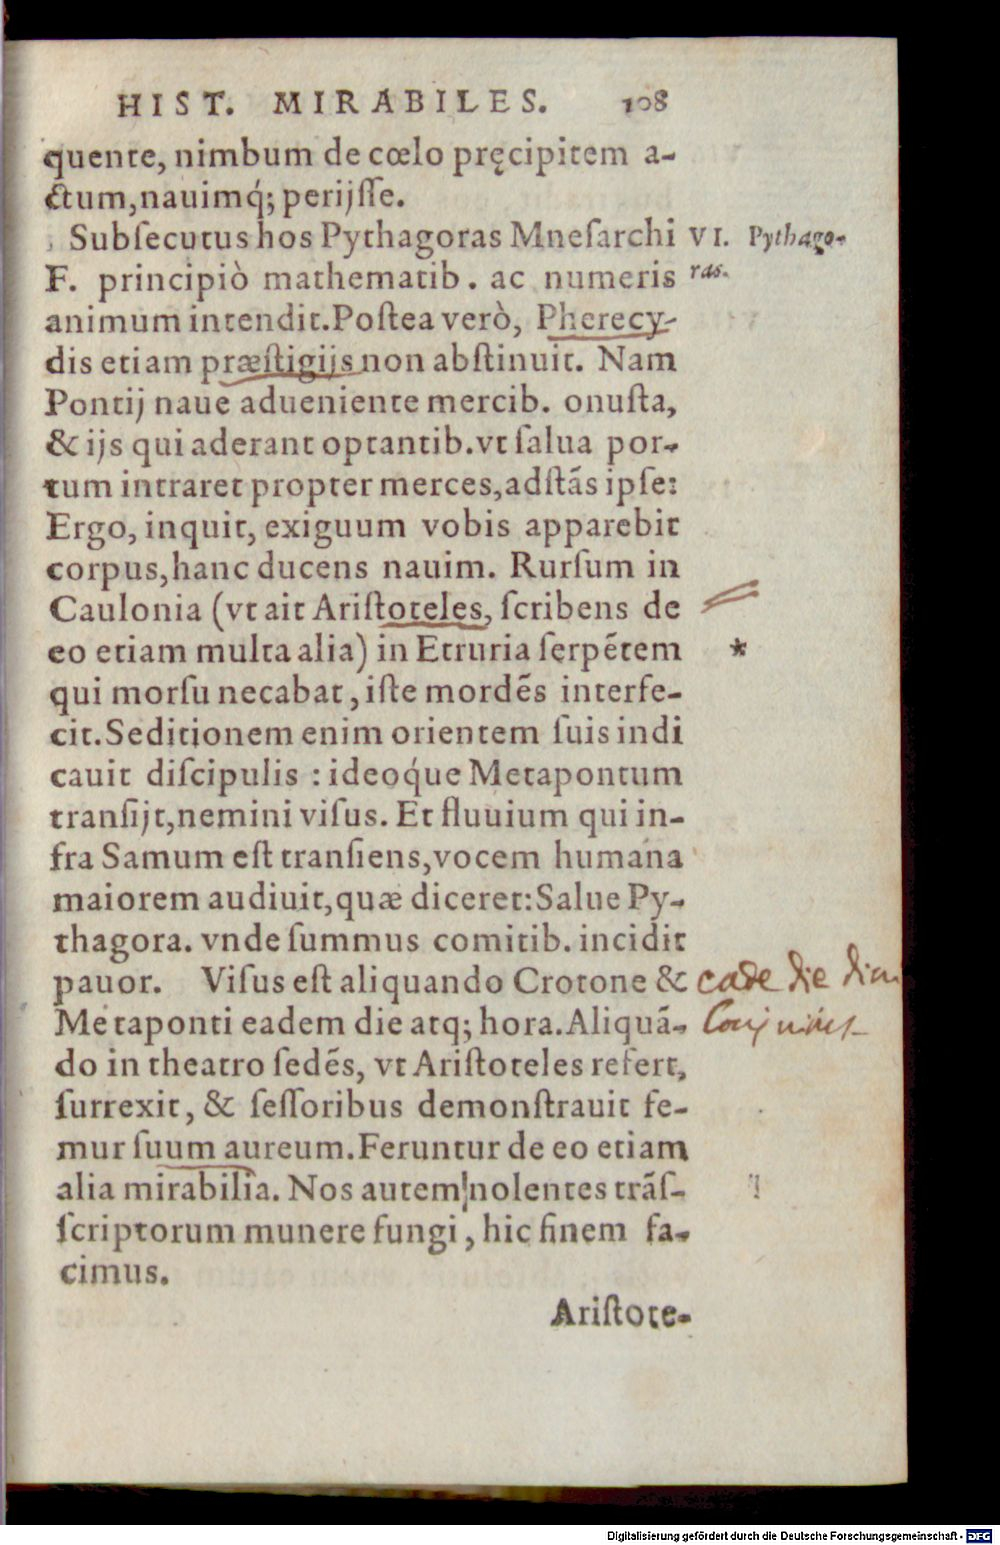 HIST. MIRABILES. 108
quente, nimbum de cœlo pręcipitem a-
ctum,nauimq́; perijſſe.
Subſecutus hos Pythagoras Mneſarchi VI. Pythago-
F. principiò mathematib. ac numeris ras.
animum intendit.Poſtea verò, Pherecy-
dis etiam præſtigijs non abſtinuit. Nam
Pontij naue adueniente mercib. onuſta,
& ijs qui aderant optantib.vt ſalua por-
tum intraret propter merces,adſtās ipſe:
Ergo, inquit, exiguum vobis apparebit
corpus,hanc ducens nauim. Rurſum in
Caulonia (vt ait Ariſtoteles, ſcribens de
eo etiam multa alia) in Etruria ſerpētem *
qui morſu necabat,iſte mordēs interfe-
cit.Seditionem enim orientem ſuis indi
cauit diſcipulis : ideoq́ue Metapontum
tranſijt,nemini viſus. Et fluuium qui in-
fra Samum eſt tranſiens,vocem humana
maiorem audiuit,quæ diceret:Salue Py-
thagora. vnde ſummus comitib. incidit
pauor. Viſus eſt aliquando Crotone &
Metaponti eadem die atq; hora.Aliquā-
do in theatro ſedēs, vt Ariſtoteles refert,
ſurrexit, & ſeſſoribus demonſtrauit fe-
mur ſuum aureum.Feruntur de eo etiam
alia mirabilia. Nos autem nolentes trāſ-
ſcriptorum munere fungi, hic finem fa-
cimus.
Ariſtote-
Digitalisierung gefördert durch die Deutsche Forschungsgemeinschaft - DFG